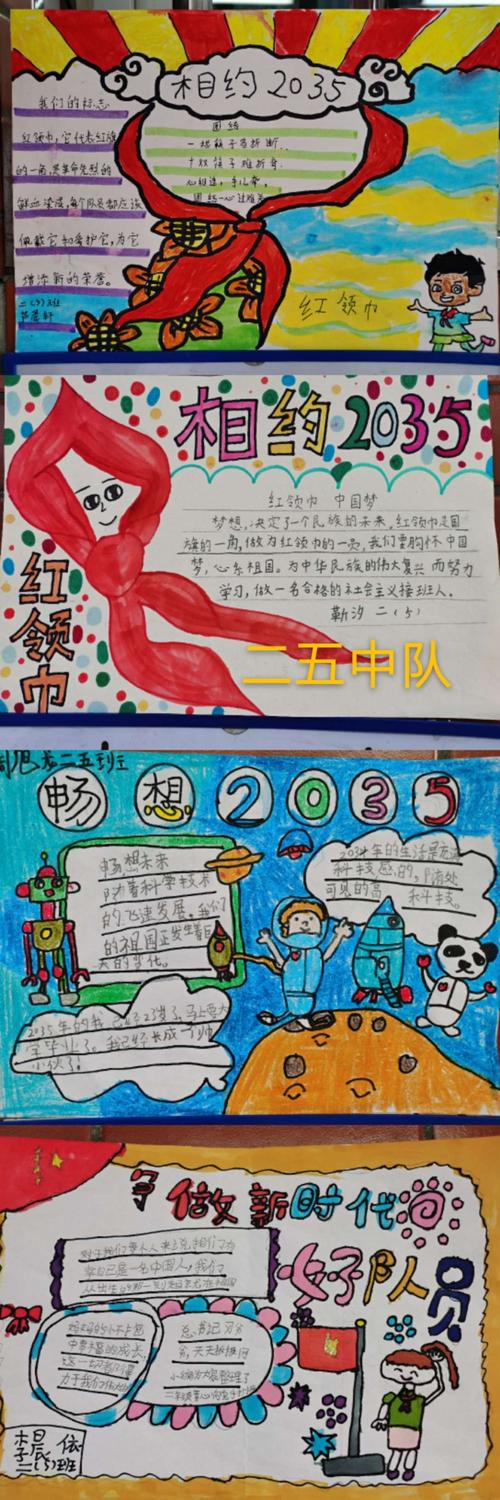 相约2035
我们的标志
红领巾，它代表红旗
的一角，是革命先烈的
鲜血染成，每个队员都应该
佩戴它和爱护它，为它
增添新的荣誉。
二(5)班
团结
一根筷子易折断.
十双筷子难折弯.
心相连，手儿牵，
团结一心
红领巾
相约2035
红领巾 中国梦
梦想，决定了一个民族的未来，红领巾是国
旗的一角，做为红领巾的一员，我们要胸怀中国
梦，心系祖国。为中华民族的伟大复兴而努力
学习，做一名合格的社会主义接班人。
靳汐 二(5)
红领巾
二五中队
二五班
畅想2035
畅想未来
随着科学技术
的飞速发展。我们
的祖国正发生着巨
大的变化。
科技感的，随处
可见的高 科技。
2035年的我已经23岁了，马上要大
学毕业了。我已经长成一个帅
小伙了！
争做新时代
好队员
二(5)班